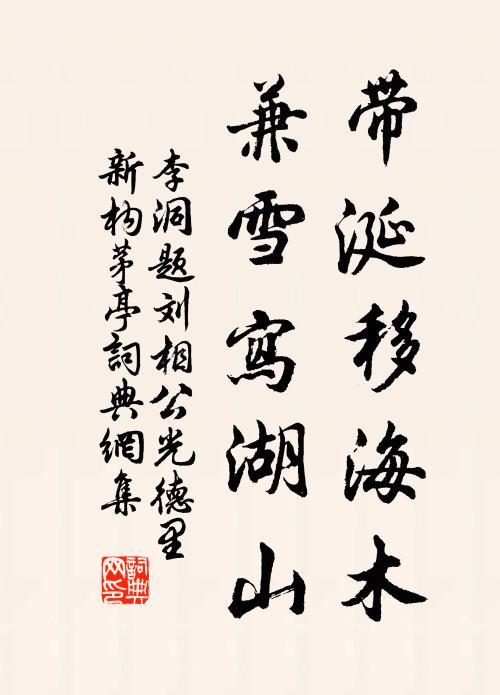 带涎移海木
兼雪寫湖山
李洞题刘相公光德里
新构茅亭詞典網集
詞典网印